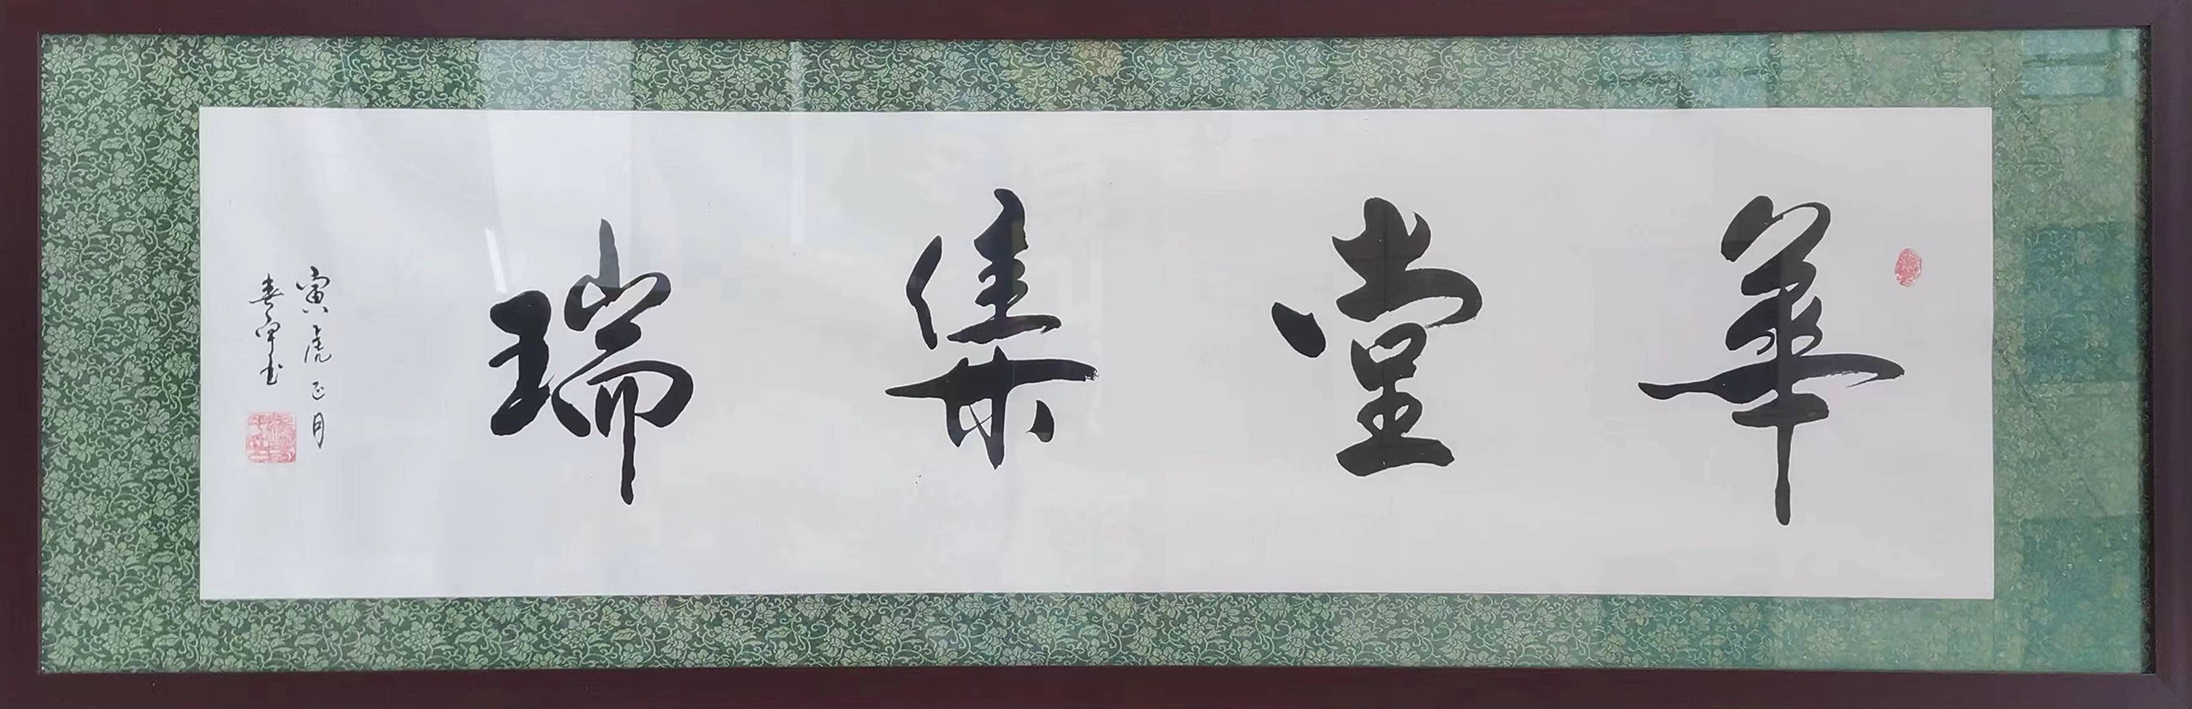 華堂集瑞
寅虎正月
春宇书